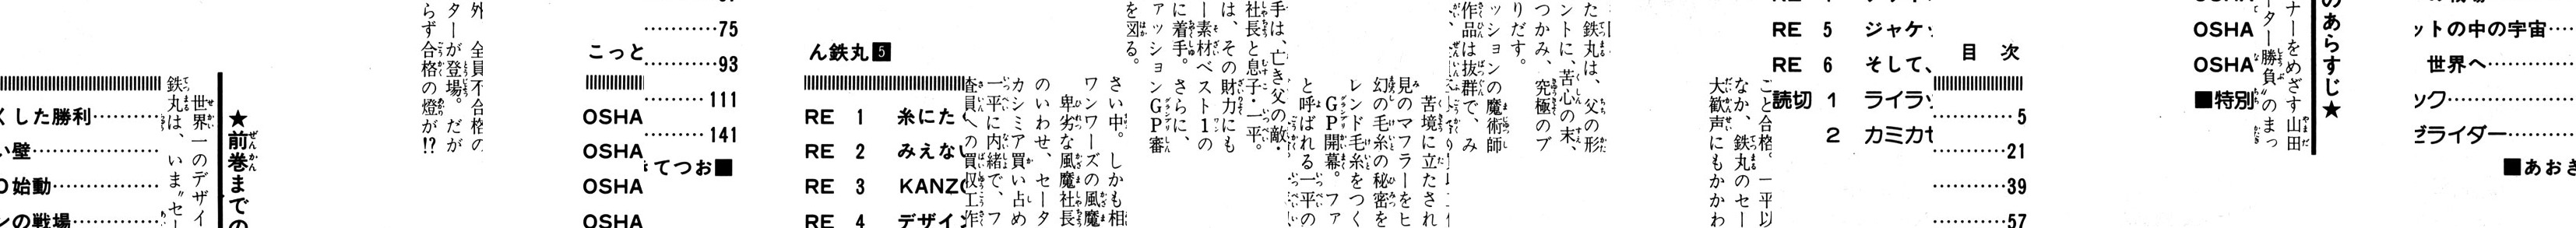 くした勝利
い壁
始動
ンの戦場
★前巻までの
世界一のデザイ
鉄丸は、いま〝セー
外 全員不合格の
ターが登場。だが
らず合格の燈が!?
こっと
OSHA
OSHA
OSHA
OSHA
75
93
111
141
てつお■
ん鉄丸5
RE 1 糸にた
RE 2 みえな
RE 3 KANZ
RE 4 デザイ
さい中。しかも相
ワンワーズの風魔
卑劣な風魔社長
のいわせ、セータ
カシミア買い占め
一平に内緒で、フ
査員への買収工作
手は、亡き父の敵・
社長と息子・一平。
は、その財力にも
ー素材ベスト1の
に着手。さらに、
ァッションGP審
を図る。
苦境に立たされ
見のマフラーをヒ
幻の毛糸の秘密を
レンド毛糸をつく
GP開幕。ファ
と呼ばれる一平の
た鉄丸は、父の形
ントに、苦心の末、
つかみ、究極のブ
りだす。
ッションの魔術師
作品は抜群で、み
ごと合格。一平以
なか、鉄丸のセー
大歓声にもかかわ
RE 5 ジャケ
RE 6 そして、
読切 1 ライラ
2 カミカ
目次
5
21
39
57
OSHA
OSHA
■特別
のあらすじ★
ナーをめざす山田
ター勝負〟のまっ
ットの中の宇宙
世界へ
ック
ライダー
■あお